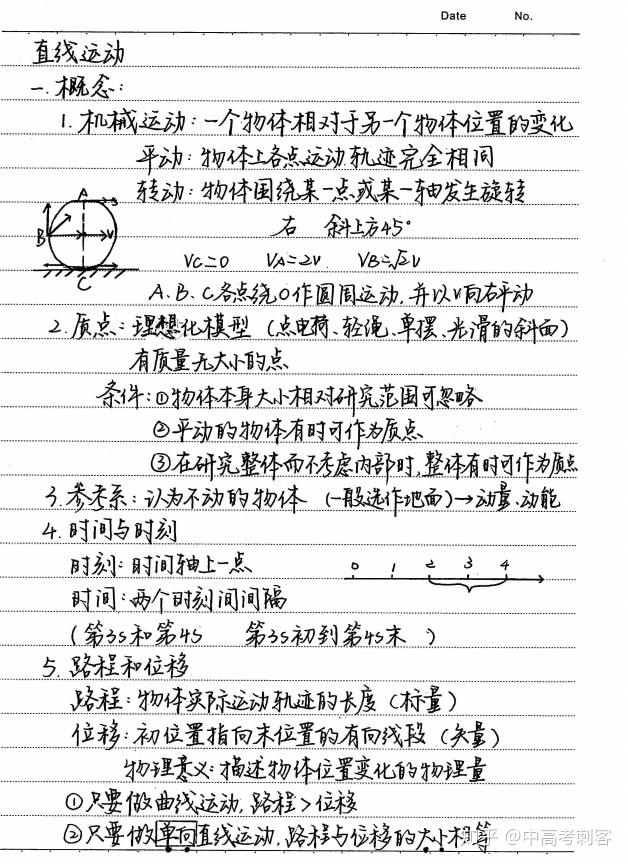 Date No.
直线运动
一.概念：
1.机械运动：一个物体相对于另一个物体位置的变化
平动：物体上各点运动轨迹完全相同
转动：物体围绕某一点或某一轴发生旋转
A
B
C
v
右 斜上方45°
VC=0 VA=2V VB=√2V
A.B.C各点绕O作圆周运动,并以V向右平动
2.质点：理想化模型（点电荷、轻绳、单摆、光滑的斜面）
有质量无大小的点
条件：①物体本身大小相对研究范围可忽略
②平动的物体有时可作为质点
③在研究整体而不考虑内部时,整体有时可作为质点
3.参考系：认为不动的物体（一般选作地面）→动量.动能
4.时间与时刻
时刻：时间轴上一点
0 1 2 3 4
时间：两个时刻间间隔
（第3s和第4s 第3s初到第4s末 ）
5.路程和位移
路程：物体实际运动轨迹的长度（标量）
位移：初位置指向末位置的有向线段（矢量）
物理意义：描述物体位置变化的物理量
①只要做曲线运动,路程>位移
②只要做单向直线运动,路程与位移的大小相等
知乎 @中高考刺客